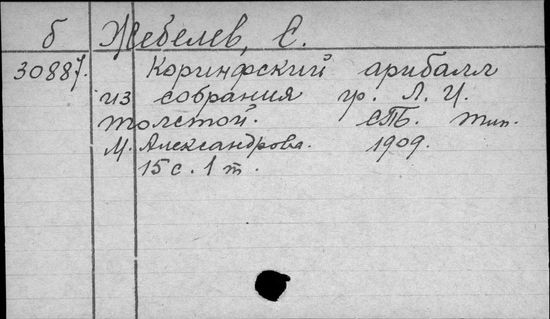 б Жебелев, С.
30887. Коринфский арибалл
из собрания гр. Л. И.
Толстой. СПБ. Тип.
М. Александрова. 1909.
15 с. 1 т.